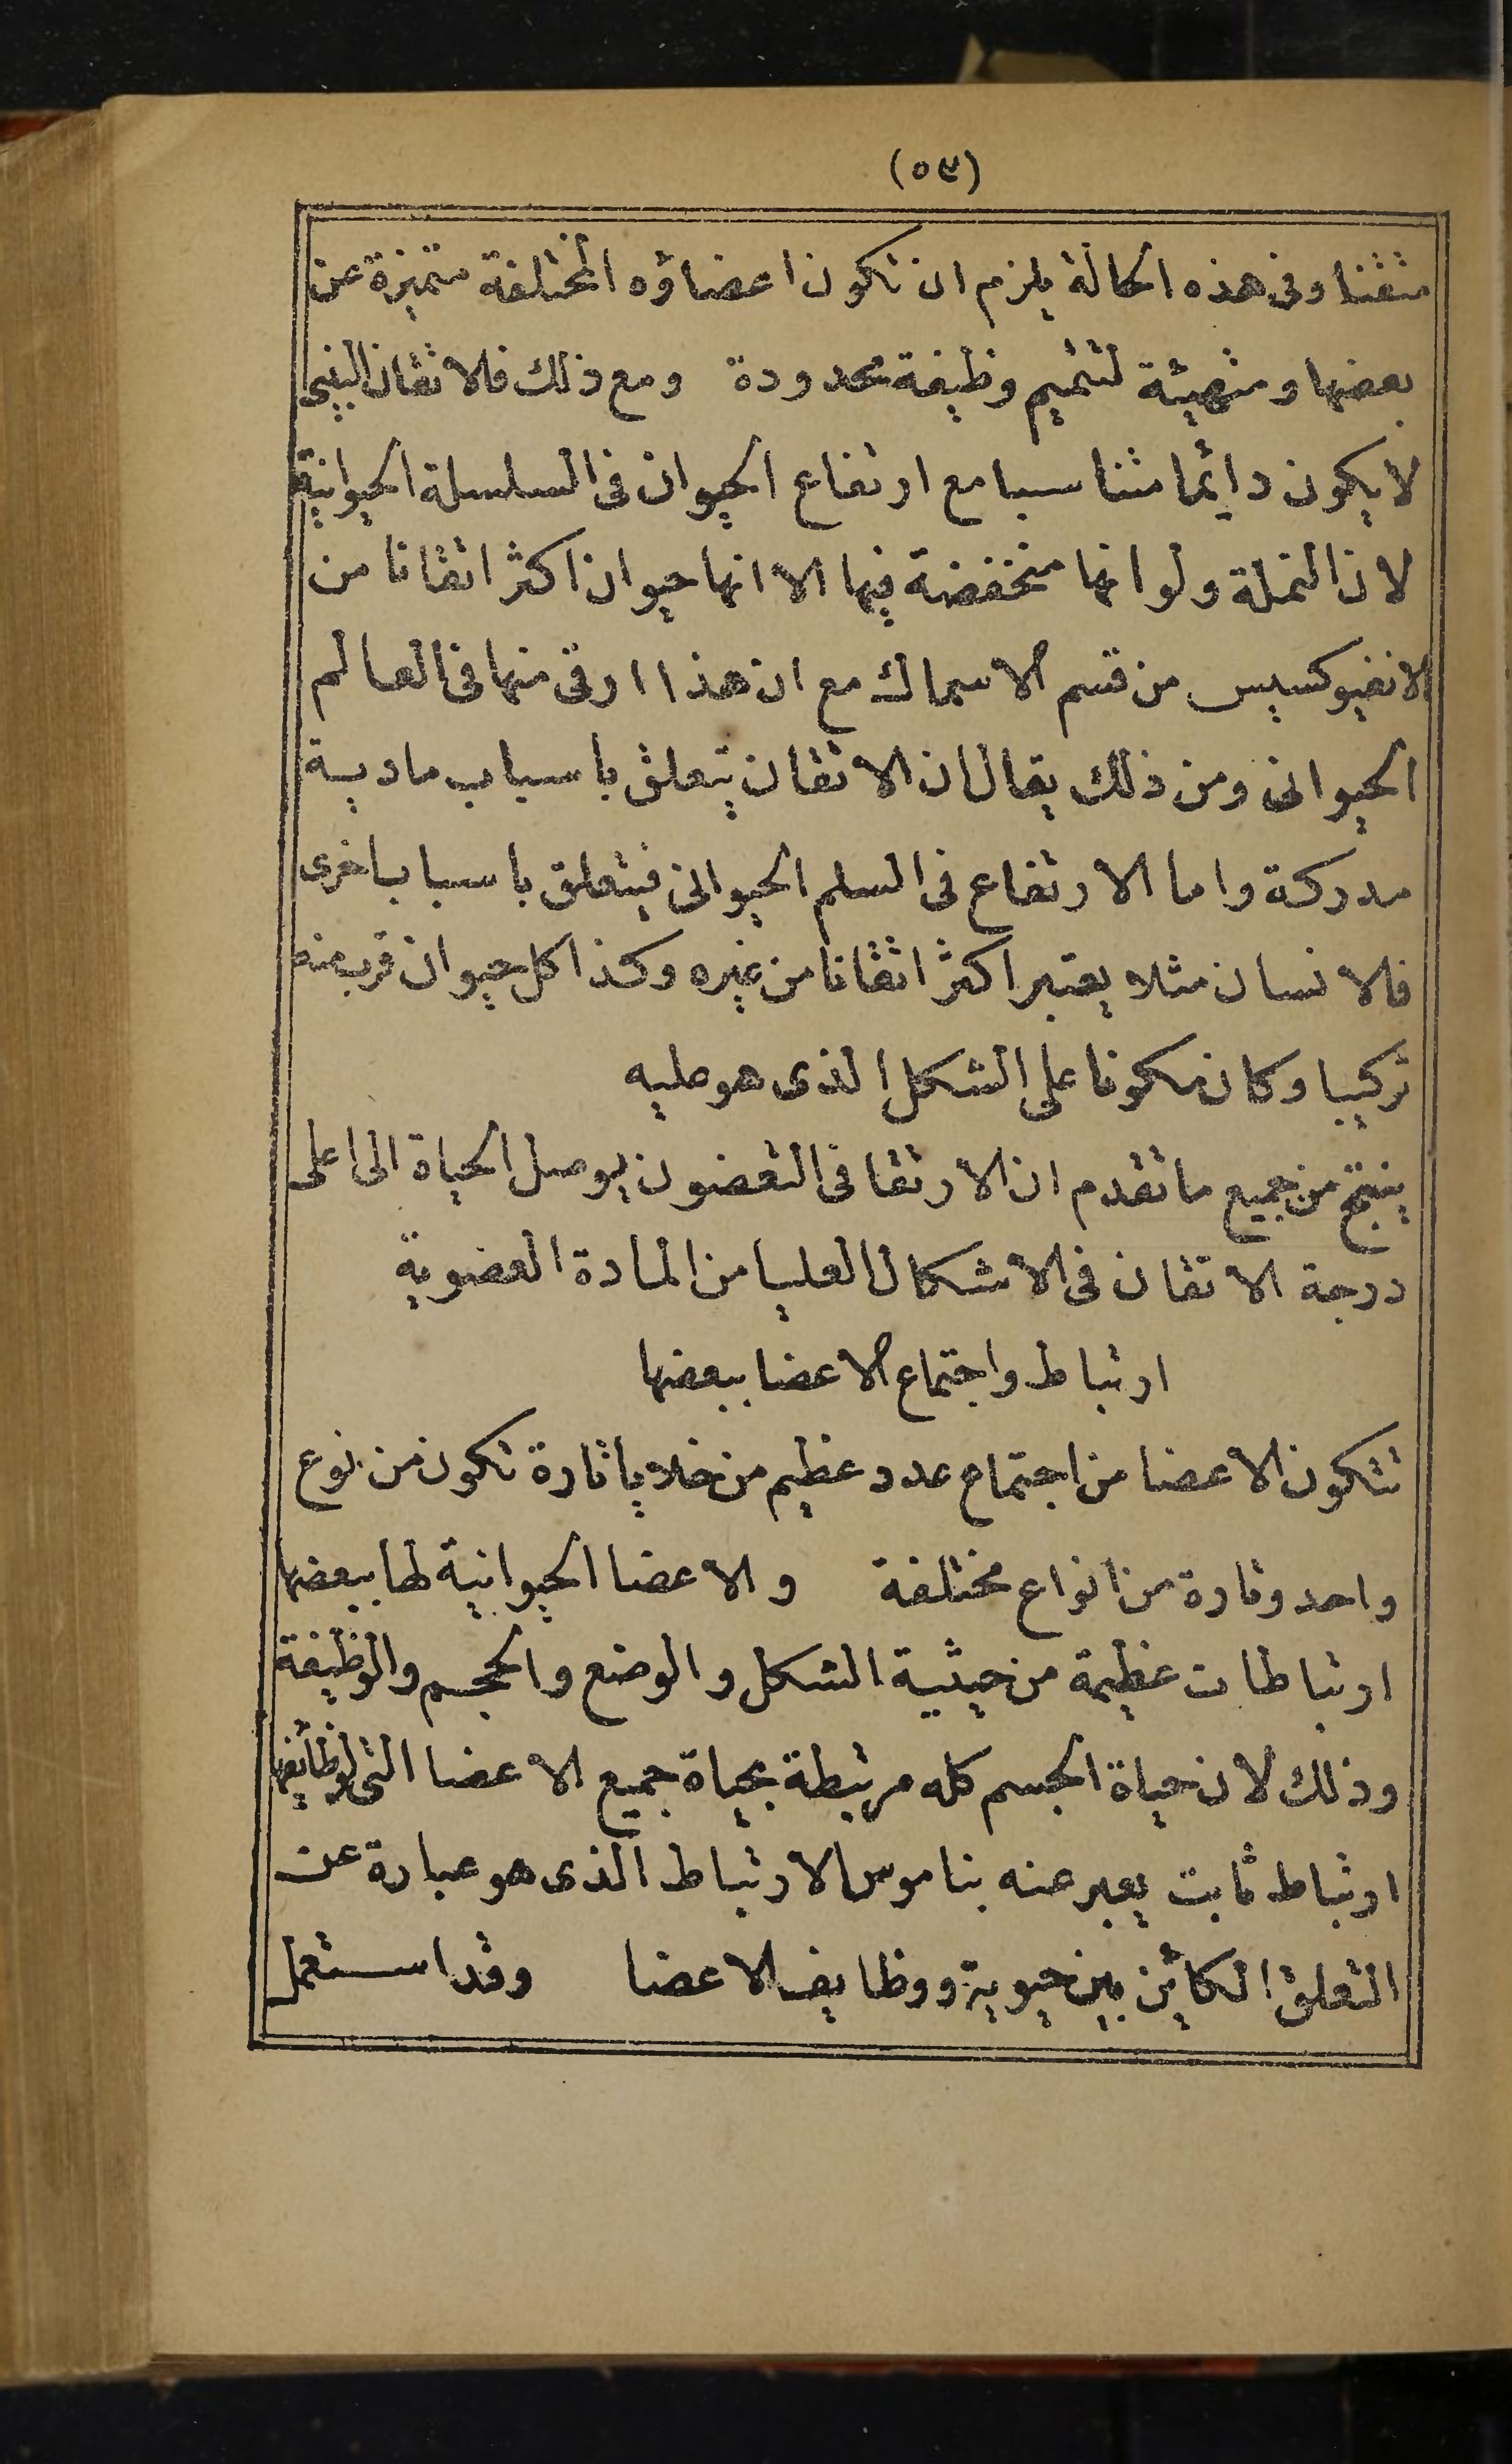 (٥٣)
متقنا وفى هذه الحالة يلزم ان تكون اعضاؤه المختلفة متميزة عن
بعضها ومتهيئة لتتميم وظيفة محدودة ومع ذلك فالاتقان البنيى
لا يكون دايما متناسبا مع ارتفاع الحيوان فى السلسلة الحيوانية
لان النملة ولو انها منخفضة فيها الا انها حيوان اكثر اتقانا من
الانفيوكسيس من قسم الاسماك مع ان هذا ارقى منها فى العالم
الحيوانى ومن ذلك يقال ان الاتقان يتعلق باسباب مادية
مدركة واما الارتفاع فى السلم الحيوانى فيتعلق باسباب اخرى
فالانسان مثلا يعتبر اكثر اتقانا من غيره وكذا كل حيوان قرب منه
تركيبا وكان مكونا على الشكل الذى هو عليه
ينتج من جميع ما تقدم ان الارتقا فى التعضون يوصل الحياة الى اعلى
درجة الاتقان فى الاشكال العليا من المادة العضوية
ارتباط واجتماع الاعضا ببعضها
تتكون الاعضا من اجتماع عدد عظيم من خلايا تارة تكون من نوع
واحد وتارة من انواع مختلفة والاعضا الحيوانية لها ببعضها
ارتباطات عظيمة من حيثية الشكل والوضع والحجم والوظيفة
وذلك لان حياة الجسم كله مرتبطة بحياة جميع الاعضا التى لوظائفها
ارتباط ثابت يعبر عنه بناموس الارتباط الذى هو عبارة عن
التعلق الكائن بين حيوية ووظايف الاعضا وقد استعمل